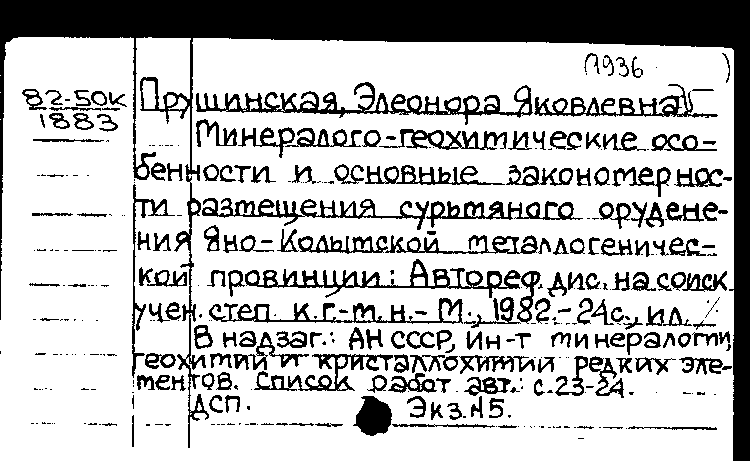 (1936 )
82-50К Прушинская, Элеонора Яковлевна
1883
Минералого-геохимические осо-
бенности и основные закономернос-
ти размещения сурьмяного орудене-
ния Яно-Колымской металлогеничес-
кой провинции: Автореф. дис. на соиск
учен. степ к.г.-м.н.- М., 1982.-24с., ил.
В надзаг.: АН СССР, Ин-т минералогии,
геохимии и кристаллохимии редких эле-
ментов. Список работ авт.: с.23-24.
ДСП. Экз.N5.